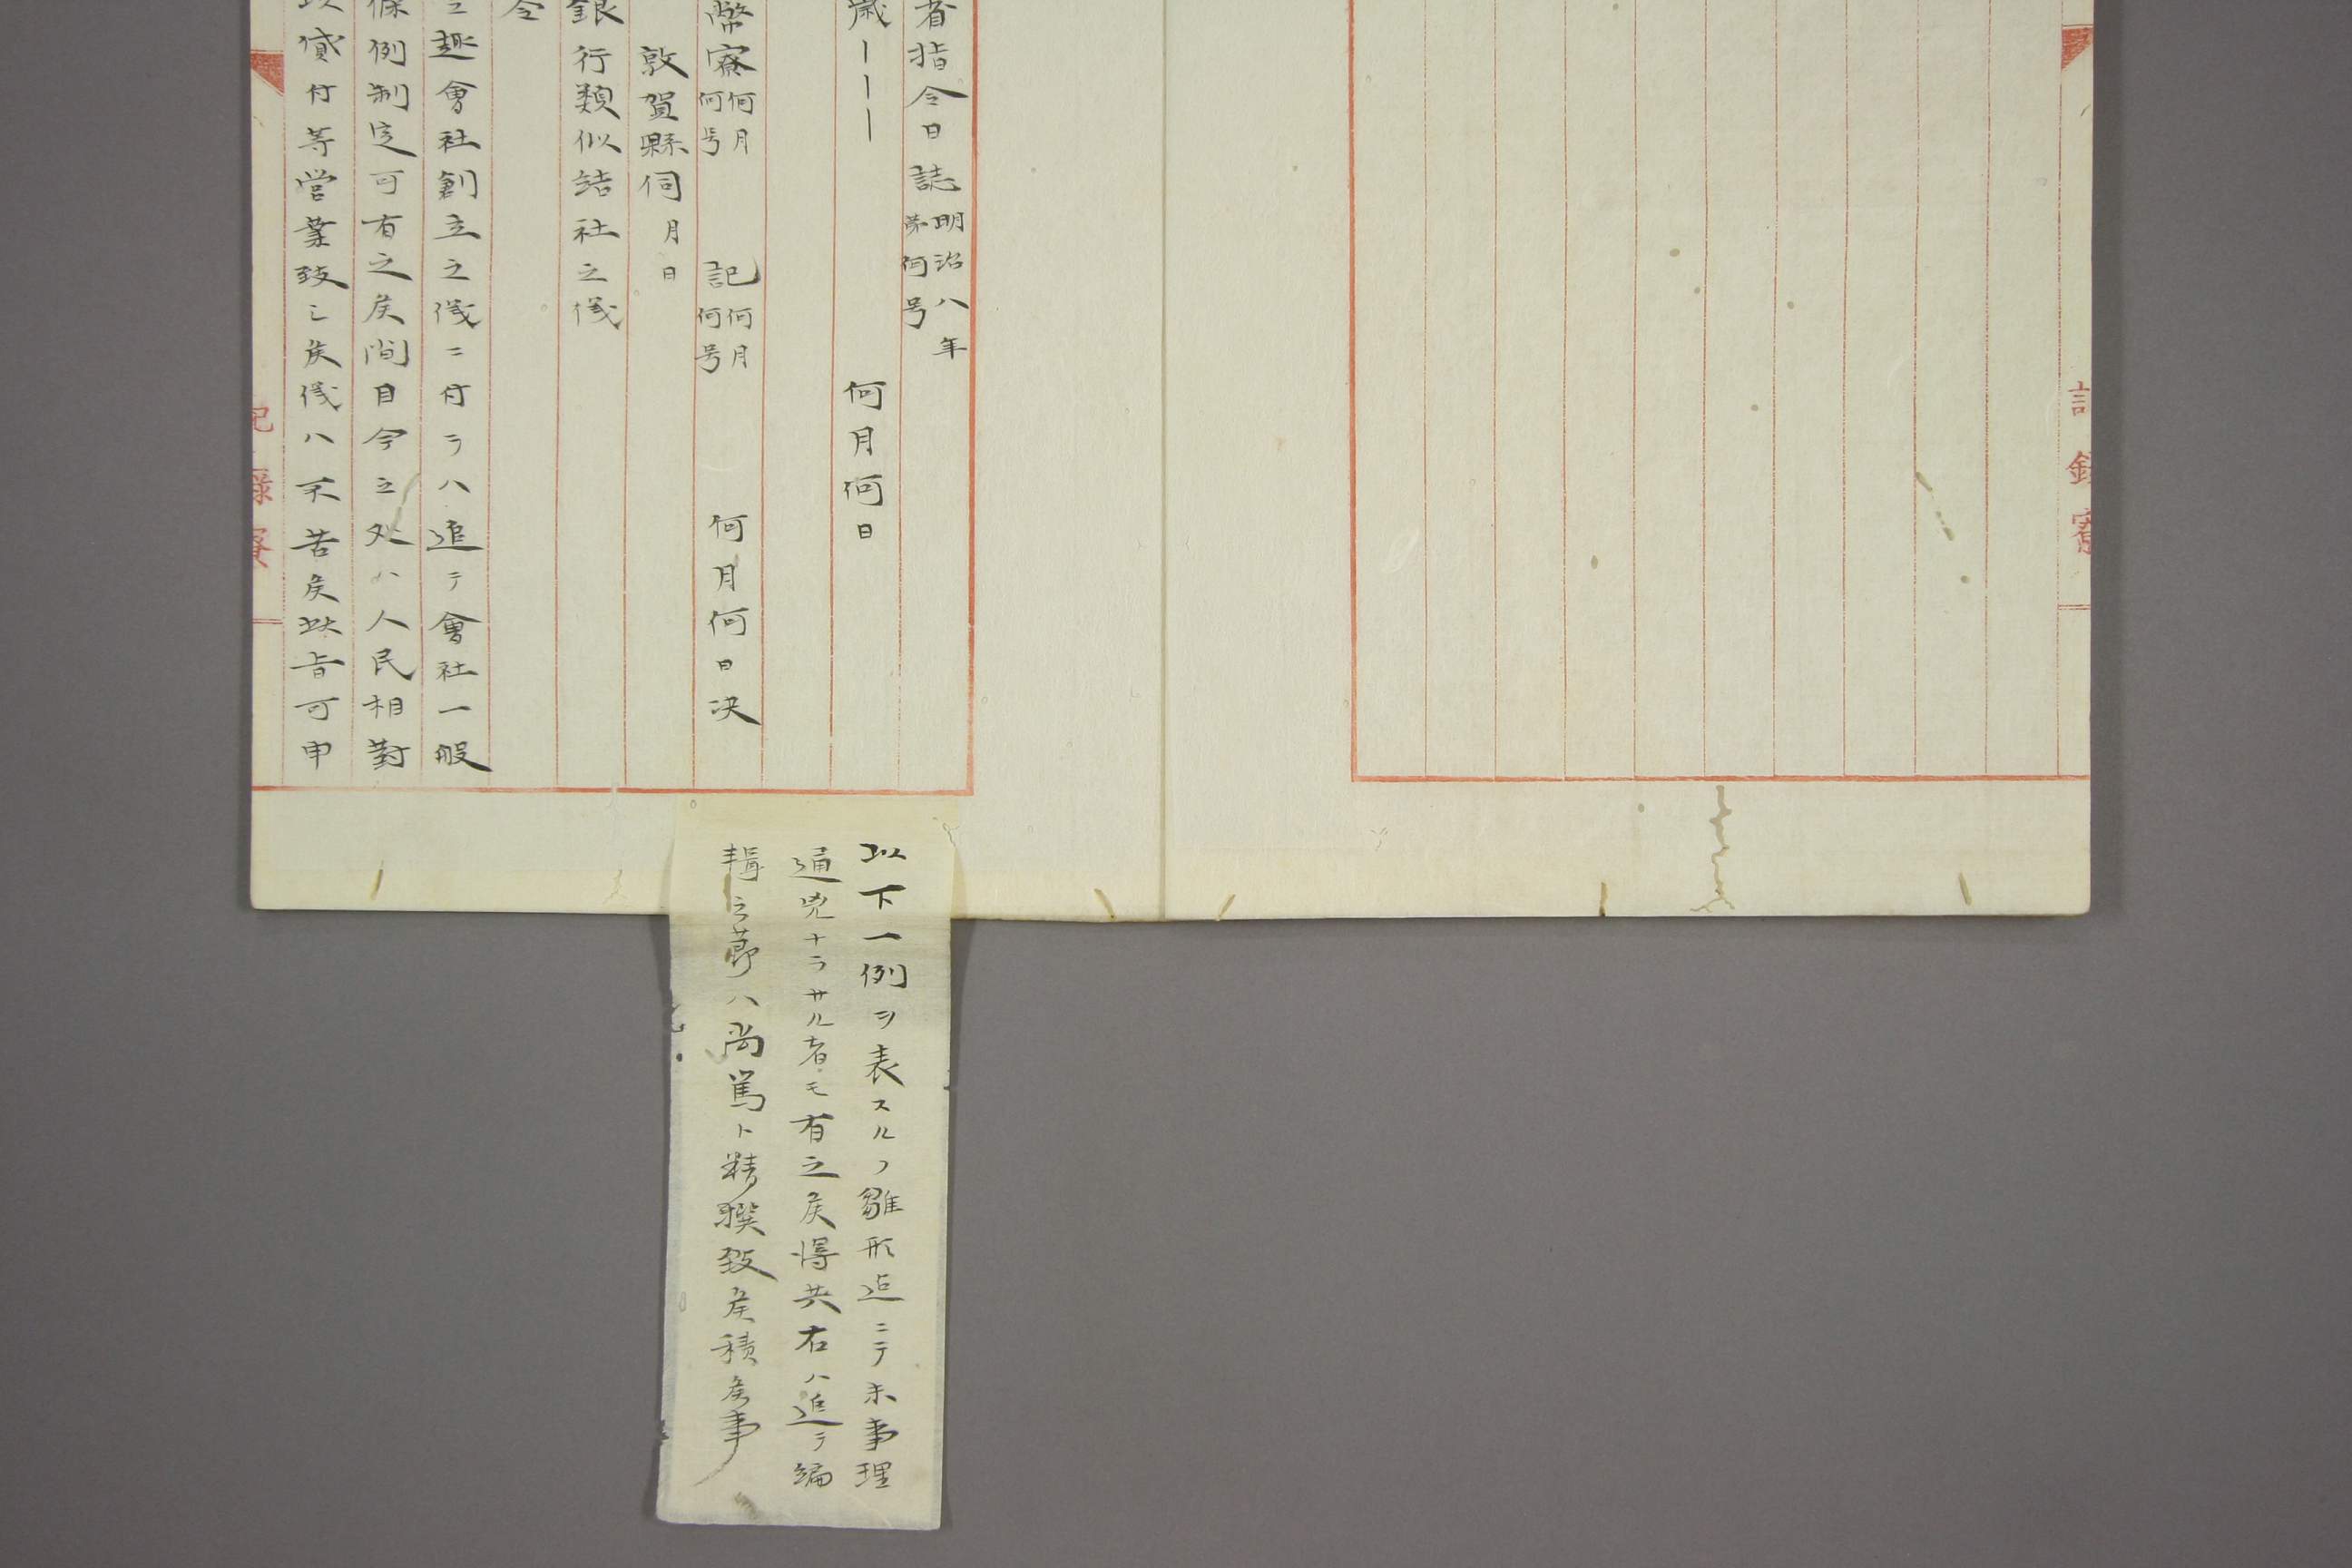 記錄寮
省指令日誌 明治八年 第何号
歳｜｜｜ 何月何日
幣寮 何月 何号 記 何月 何号 何月何日決
敦賀縣伺 月 日
銀行類似結社之儀
令
趣會社創立之儀ニ付テハ追テ會社一般
條例制定可有之矦間目今之処ハ人民相對
貸付等営業致シ矦儀ハ不苦矦此旨可申
記錄寮
以下一例ヲ表スルノ雛形迠ニテ未事理
通兇ナラサル者モ有之矦得共右ハ追テ編
輯之節ハ尚篤ト精撰致矦積矦事